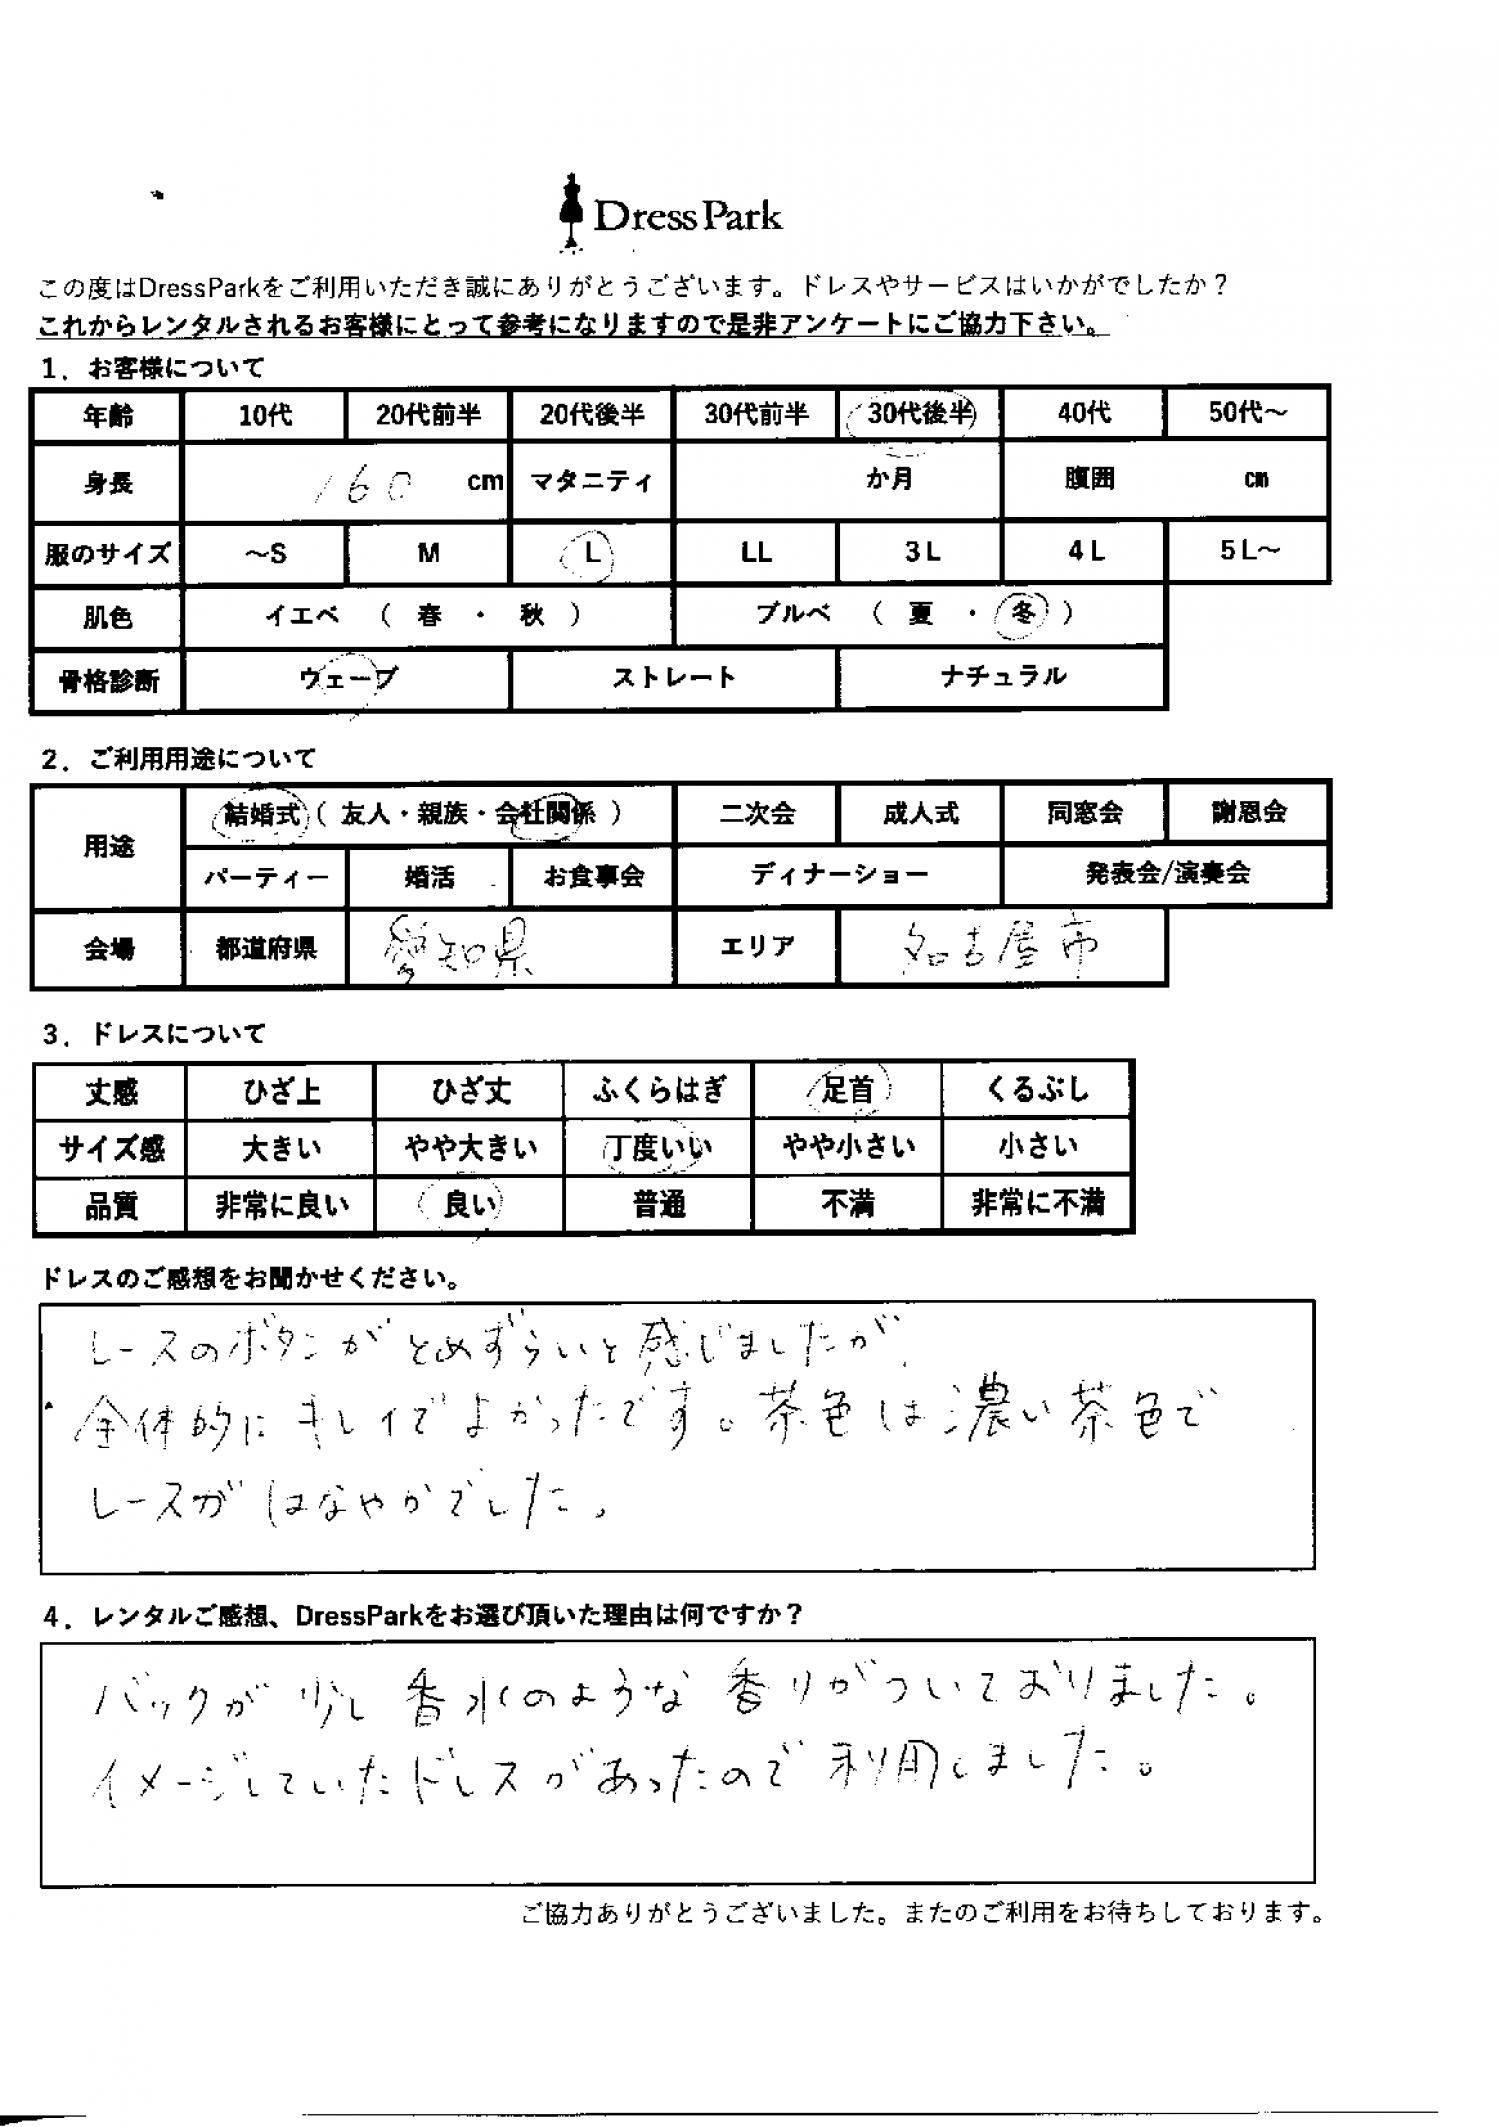 Dress Park
この度はDressParkをご利用いただき誠にありがとうございます。ドレスやサービスはいかがでしたか？
これからレンタルされるお客様にとって参考になりますので是非アンケートにご協力下さい。
1．お客様について
年齢 10代 20代前半 20代後半 30代前半 30代後半 40代 50代～
身長 160 cm マタニティ か月 腹囲 cm
服のサイズ ～S M L LL 3L 4L 5L～
肌色 イエベ （ 春 ・ 秋 ） ブルベ （ 夏 ・ 冬 ）
骨格診断 ウェーブ ストレート ナチュラル
2．ご利用用途について
用途 結婚式（ 友人・親族・会社関係 ） 二次会 成人式 同窓会 謝恩会
パーティー 婚活 お食事会 ディナーショー 発表会/演奏会
会場 都道府県 愛知県 エリア 名古屋市
3．ドレスについて
丈感 ひざ上 ひざ丈 ふくらはぎ 足首 くるぶし
サイズ感 大きい やや大きい 丁度いい やや小さい 小さい
品質 非常に良い 良い 普通 不満 非常に不満
ドレスのご感想をお聞かせください。
レースのボタンがとめずらいと感じましたが、
全体的にキレイでよかったです。茶色は濃い茶色で
レースがはなやかでした。
4．レンタルご感想、DressParkをお選び頂いた理由は何ですか？
バックが少し香水のような香りがついておりました。
イメージしていたドレスがあったので利用しました。
ご協力ありがとうございました。またのご利用をお待ちしております。